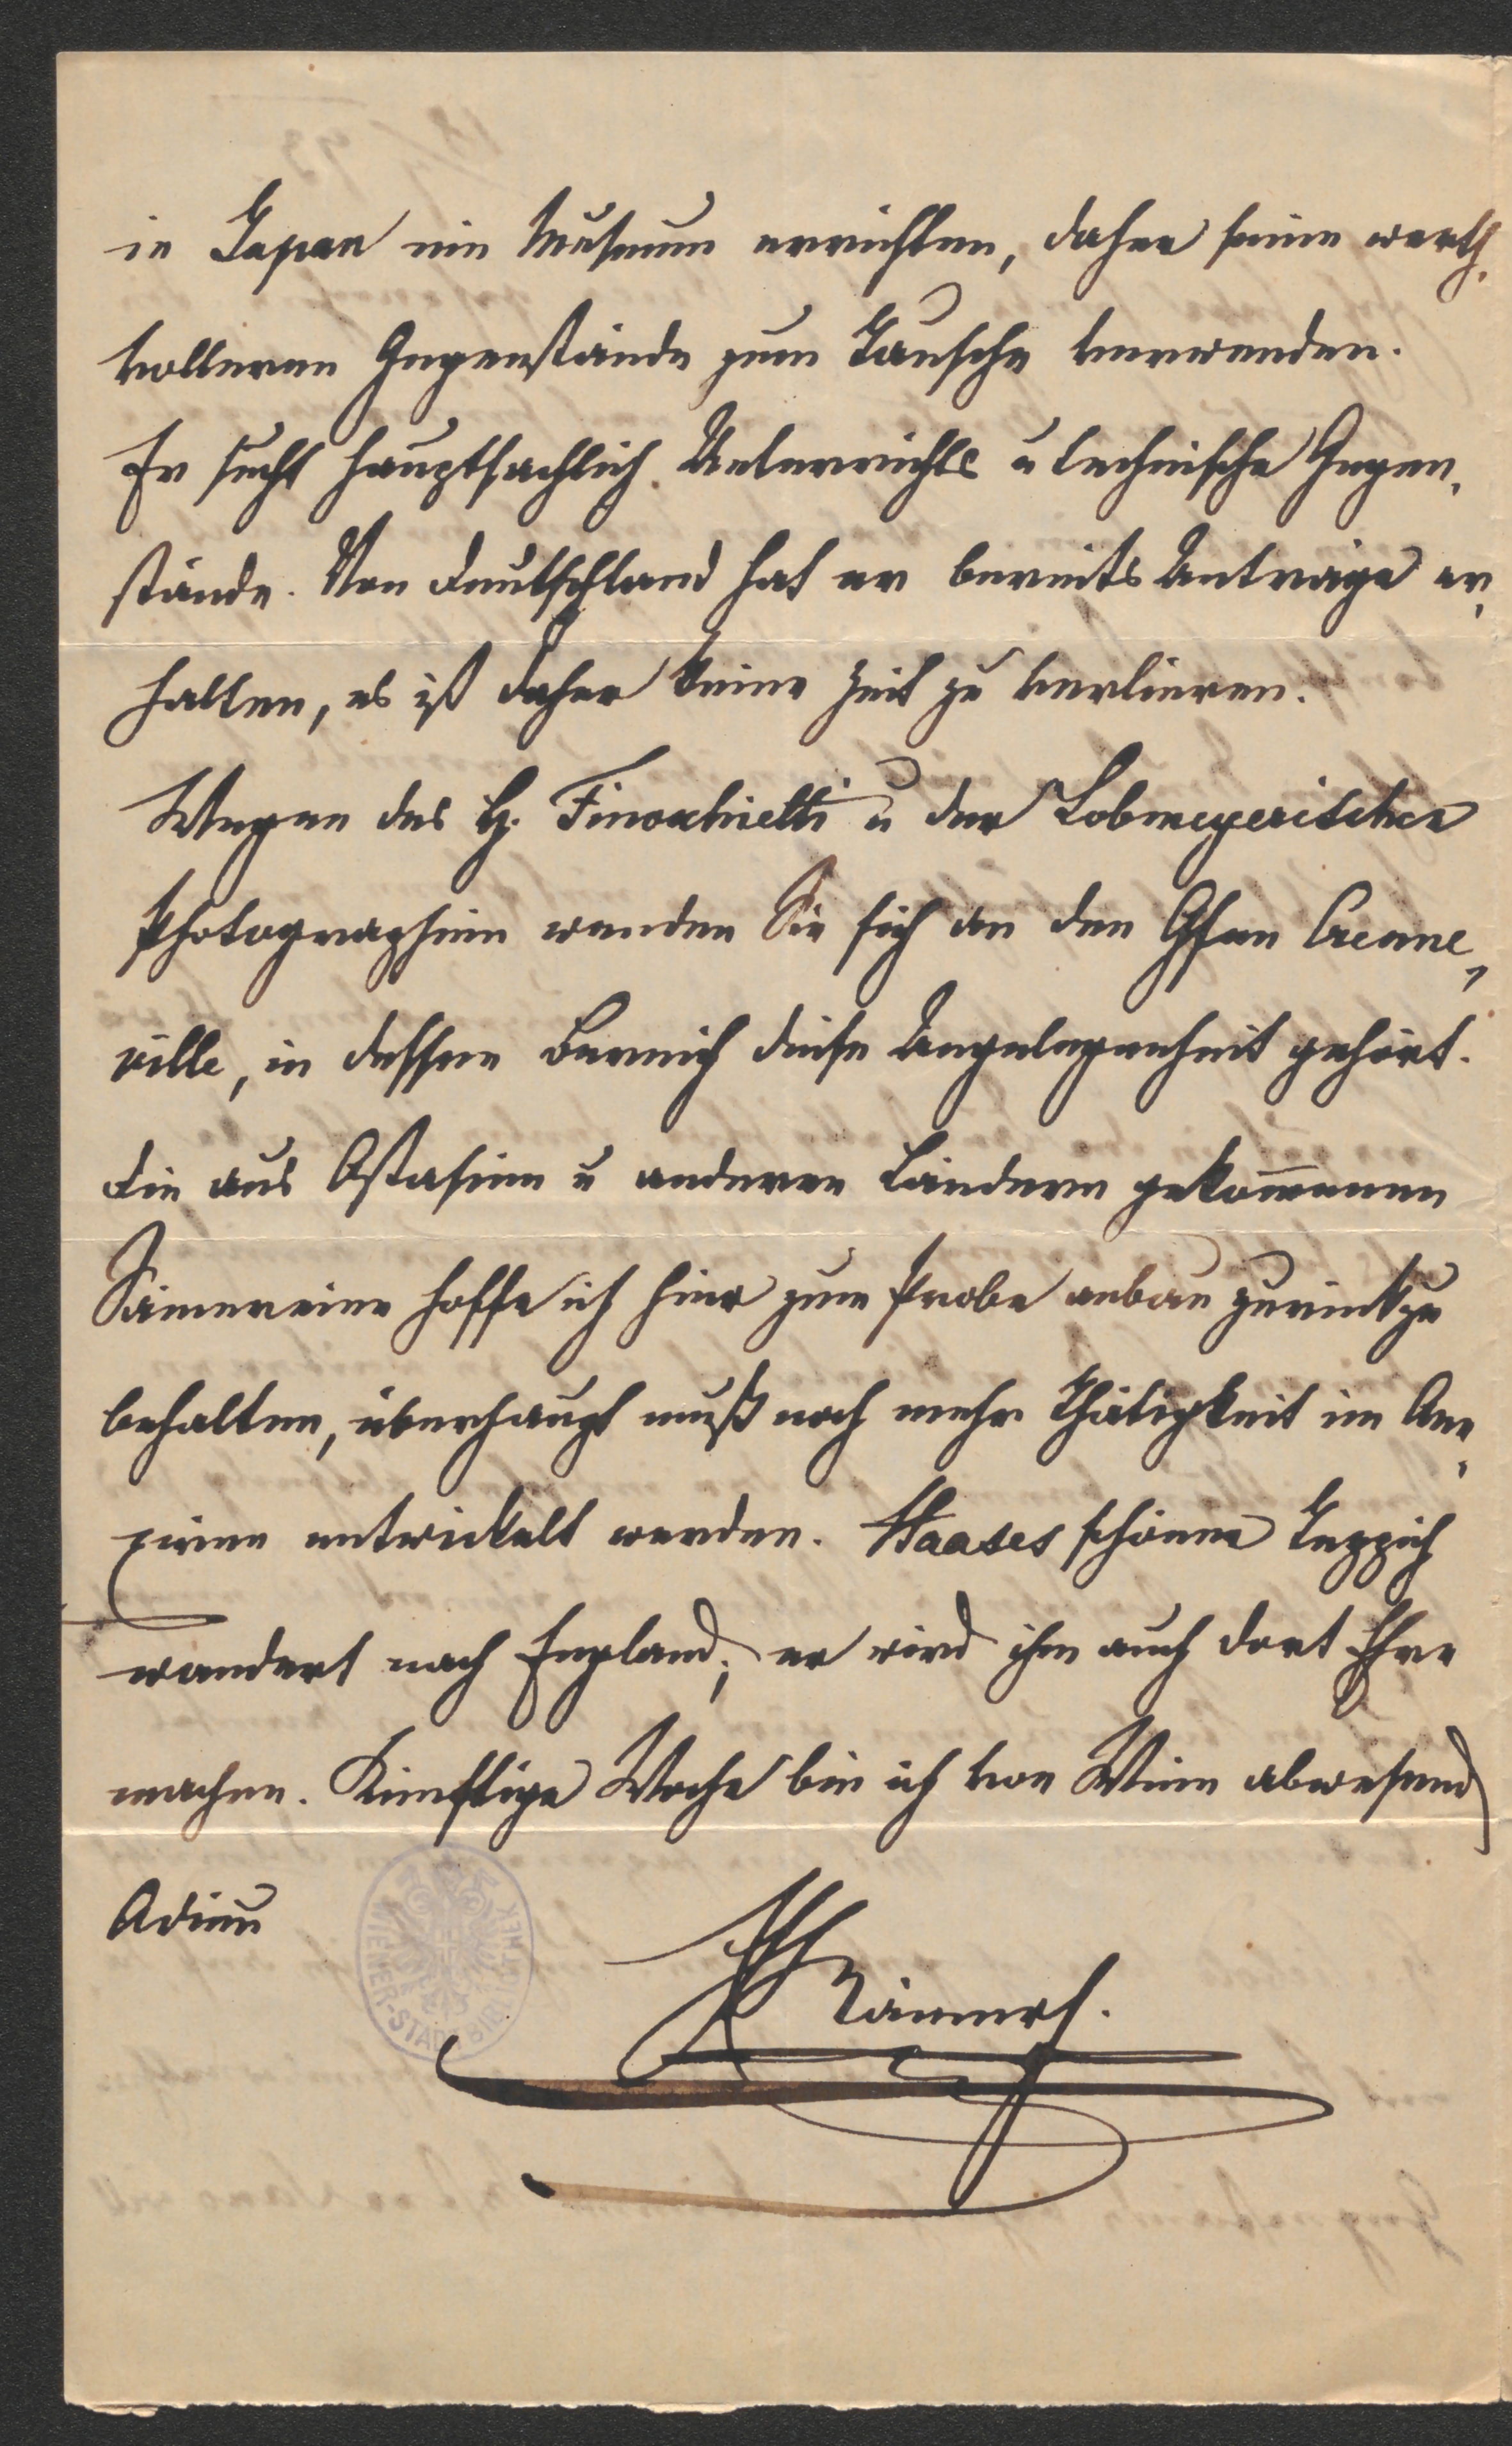 in Japan ein Museum errichten, daher seine werth-
volleren Gegenstände zum Tausche verwenden.
Er sucht hauptsächlich Unterrichts u technische Gegen-
stände. Von Deutschland hat er bereits Anträge er-
halten, es ist daher keine Zeit zu verlieren.
Wegen des H. Finocchietti u der Lobmeyerischen
Photographien wenden Sie sich an den Gfen Crenne-
ville, in dessen Bereich diese Angelegenheit gehört.
Die aus Ostasien u anderen Ländern gekom̅enen
Sämereien hoffe ich hier zum Probe anbau zurückzu
behalten, überhaupt muß noch mehr Thätigkeit im An-
eignen entwickelt werden. Haases schöner Teppich
wandert nach England; er wird ihm auch dort Ehre
machen. Künftige Woche bin ich von Wien abwesend
Adieu
WIENER-STADTBIBLIOTHEK